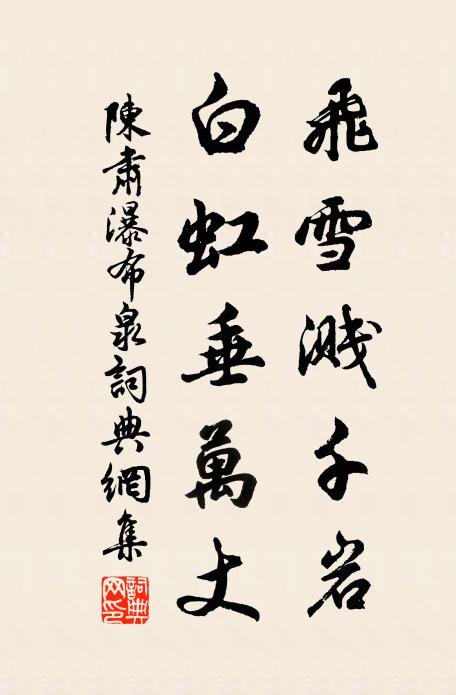 飛雪濺千岩
白虹垂萬丈
陳肅瀑布泉詞典網集
詞典網印